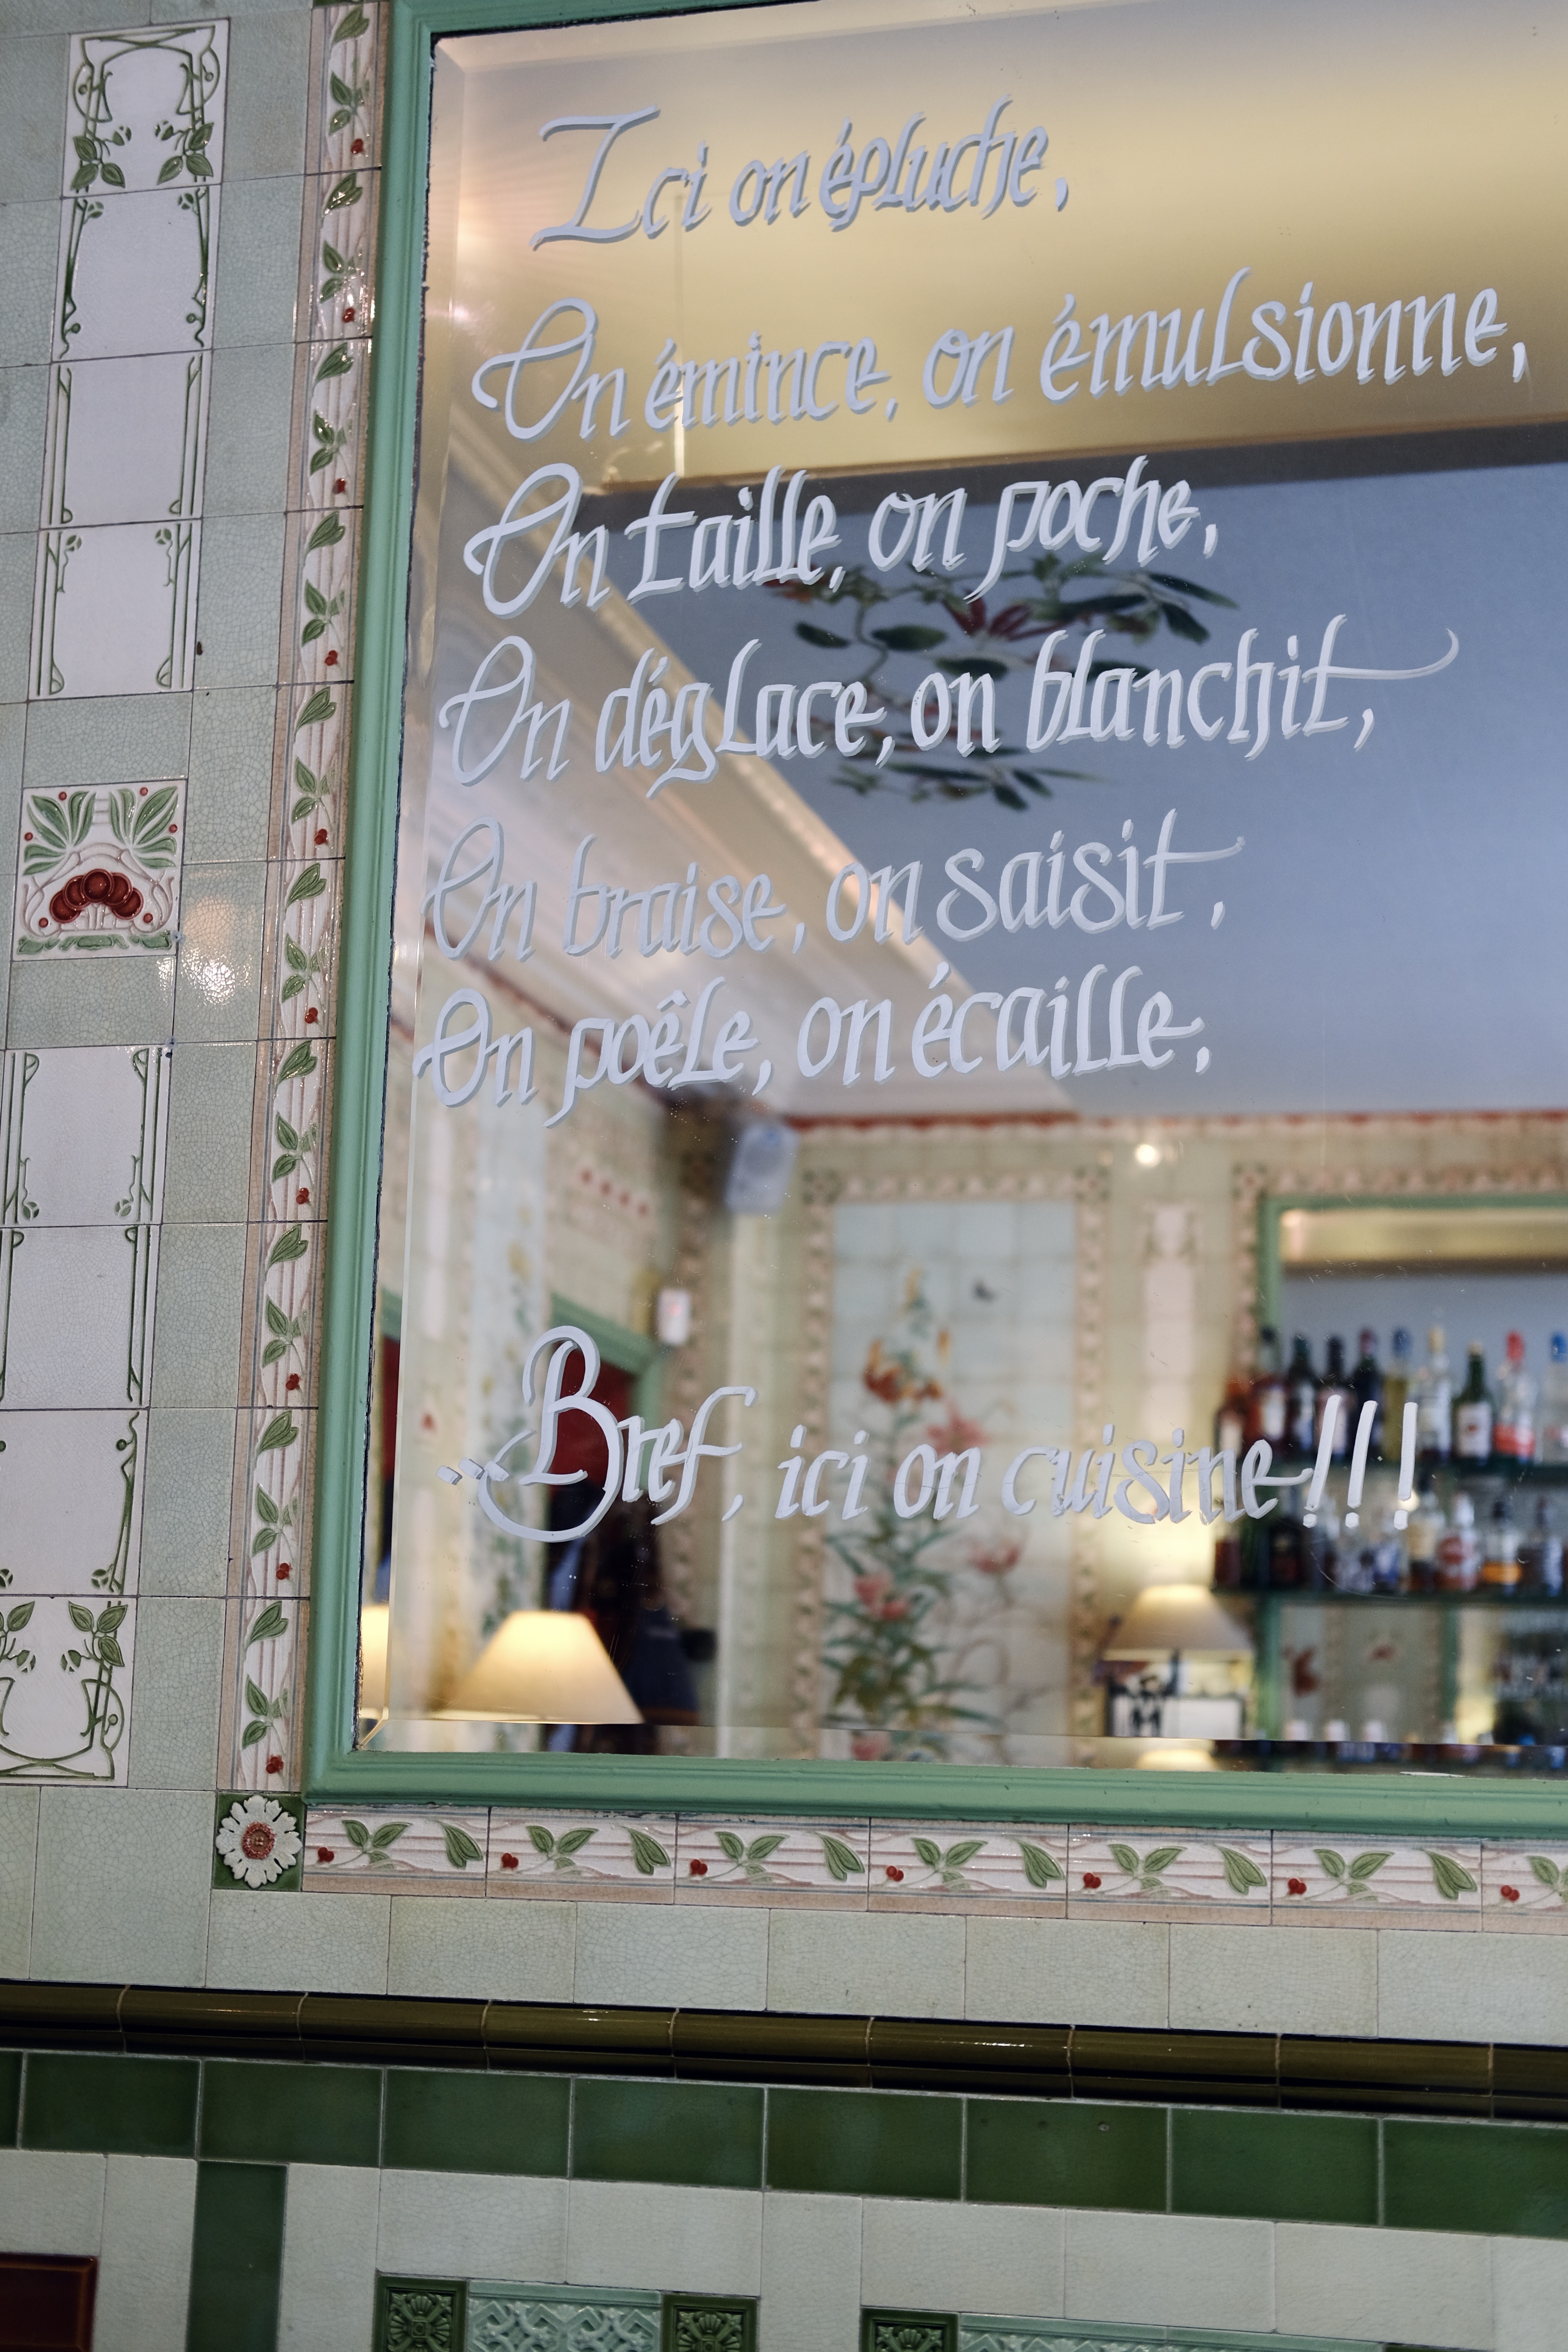 Ici on épluche,
On émince, on émulsionne,
On taille, on poche,
On déglace, on blanchit,
On braise, on saisit,
On poêle, on écaille,
...Bref, ici on cuisine!!!